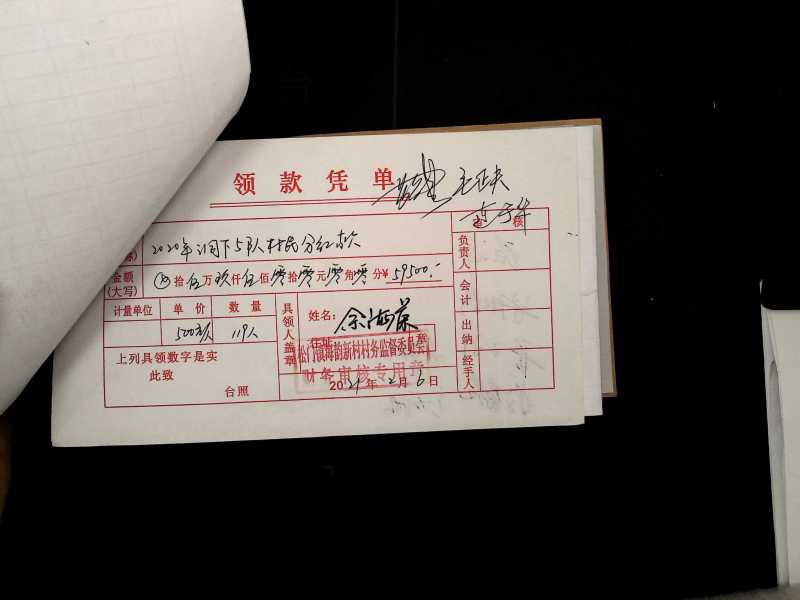 领款凭单
审核
2020年 下5队村民分红款
金额(大写) 拾伍万玖仟伍佰零拾零元零角零分¥59500.-
计量单位 单价 数量
500元/人 119人
上列具领数字是实
此致
台照
具领人盖章
姓名:
住址 章
松门镇海韵新村村务监督委员会
财务审核专用章
2021年2月6日
负责人
会计
出纳
经手人